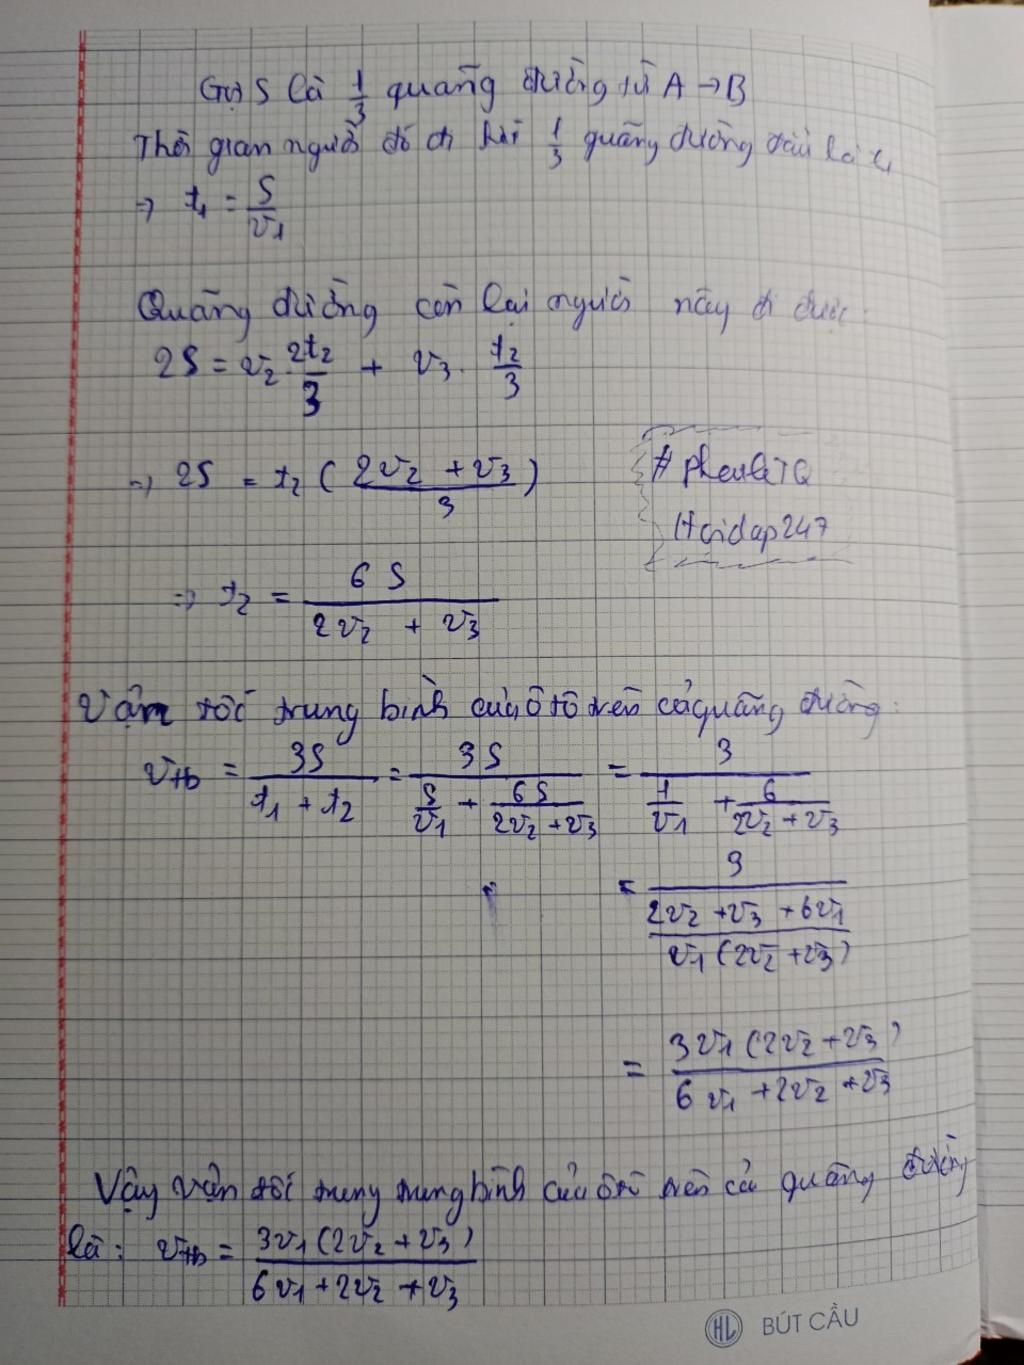 Gọi S là 1/3 quãng đường từ A → B
Thời gian người đó đi hết 1/3 quãng đường đầu là t₁
⇒ t₁ = S/v₁
Quãng đường còn lại người này đi được:
2S = v₂ · 2t₂/3 + v₃ · t₂/3
⇒ 2S = t₂ ((2v₂ + v₃)/3)
Hoidap247
⇒ t₂ = 6S/(2v₂ + v₃)
Vận tốc trung bình của ô tô trên cả quãng đường:
vtb = 3S/(t₁ + t₂) = 3S/(S/v₁ + 6S/(2v₂ + v₃)) = 3/(1/v₁ + 6/(2v₂ + v₃))
= 3/((2v₂ + v₃ + 6v₁)/(v₁(2v₂ + v₃)))
= 3v₁(2v₂ + v₃)/(6v₁ + 2v₂ + v₃)
Vậy vận tốc trung trung bình của ô tô trên cả quãng đường
là: vtb = 3v₁(2v₂ + v₃)/(6v₁ + 2v₂ + v₃)
HL BÚT CẦU